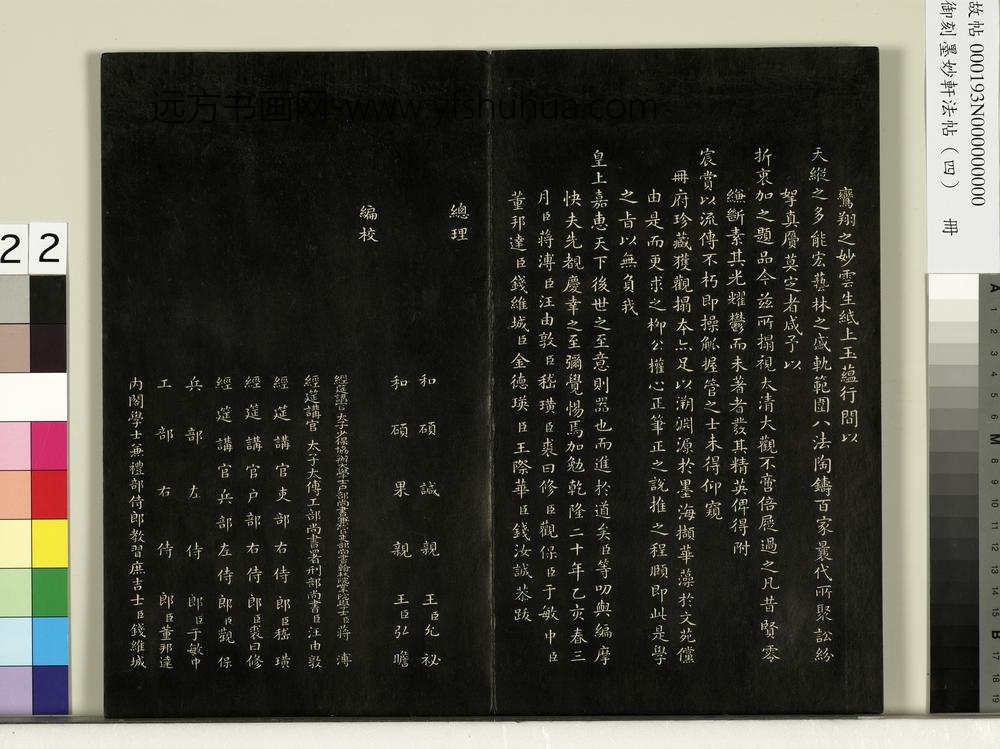 故帖 000193N000000000
御刻墨妙軒法帖（四） 冊
远方书画网-www.yfshuhua.com
鸞翔之妙雲生紙上玉蘊行間以
天縱之多能宏藝林之盛軌範圍八法陶鑄百家曩代所聚訟紛
挐真贋莫定者咸予以
折衷加之題品今茲所搨視太清大觀不啻倍蓰過之凡昔賢零
縑斷素其光耀鬱而未著者發其精英俾得附
宸賞以流傳不朽即操觚握管之士未得仰窺
冊府珍藏獲觀搨本亦足以溯淵源於墨海擷華藻於文苑儻
由是而更求之柳公權心正筆正之說推之程顥即此是學
之旨以無負我
皇上嘉惠天下後世之至意則器也而進於道矣臣等叨與編摩
快夫先覩慶幸之至彌覺惕焉加勉乾隆二十年乙亥春三
月臣蔣溥臣汪由敦臣嵇璜臣裘曰修臣觀保臣于敏中臣
董邦達臣錢維城臣金德瑛臣王際華臣錢汝誠恭跋
總理
和碩諴親王臣允祕
和碩果親王臣弘瞻
編校
經筵講官太子少保協辦大學士戶部尚書兼掌院學士臣蔣溥
經筵講官太子太傅工部尚書署刑部尚書臣汪由敦
經筵講官吏部右侍郎臣嵇璜
經筵講官戶部右侍郎臣裘曰修
經筵講官兵部左侍郎臣觀保
兵部左侍郎臣于敏中
工部右侍郎臣董邦達
內閣學士兼禮部侍郎教習庶吉士臣錢維城
2 2